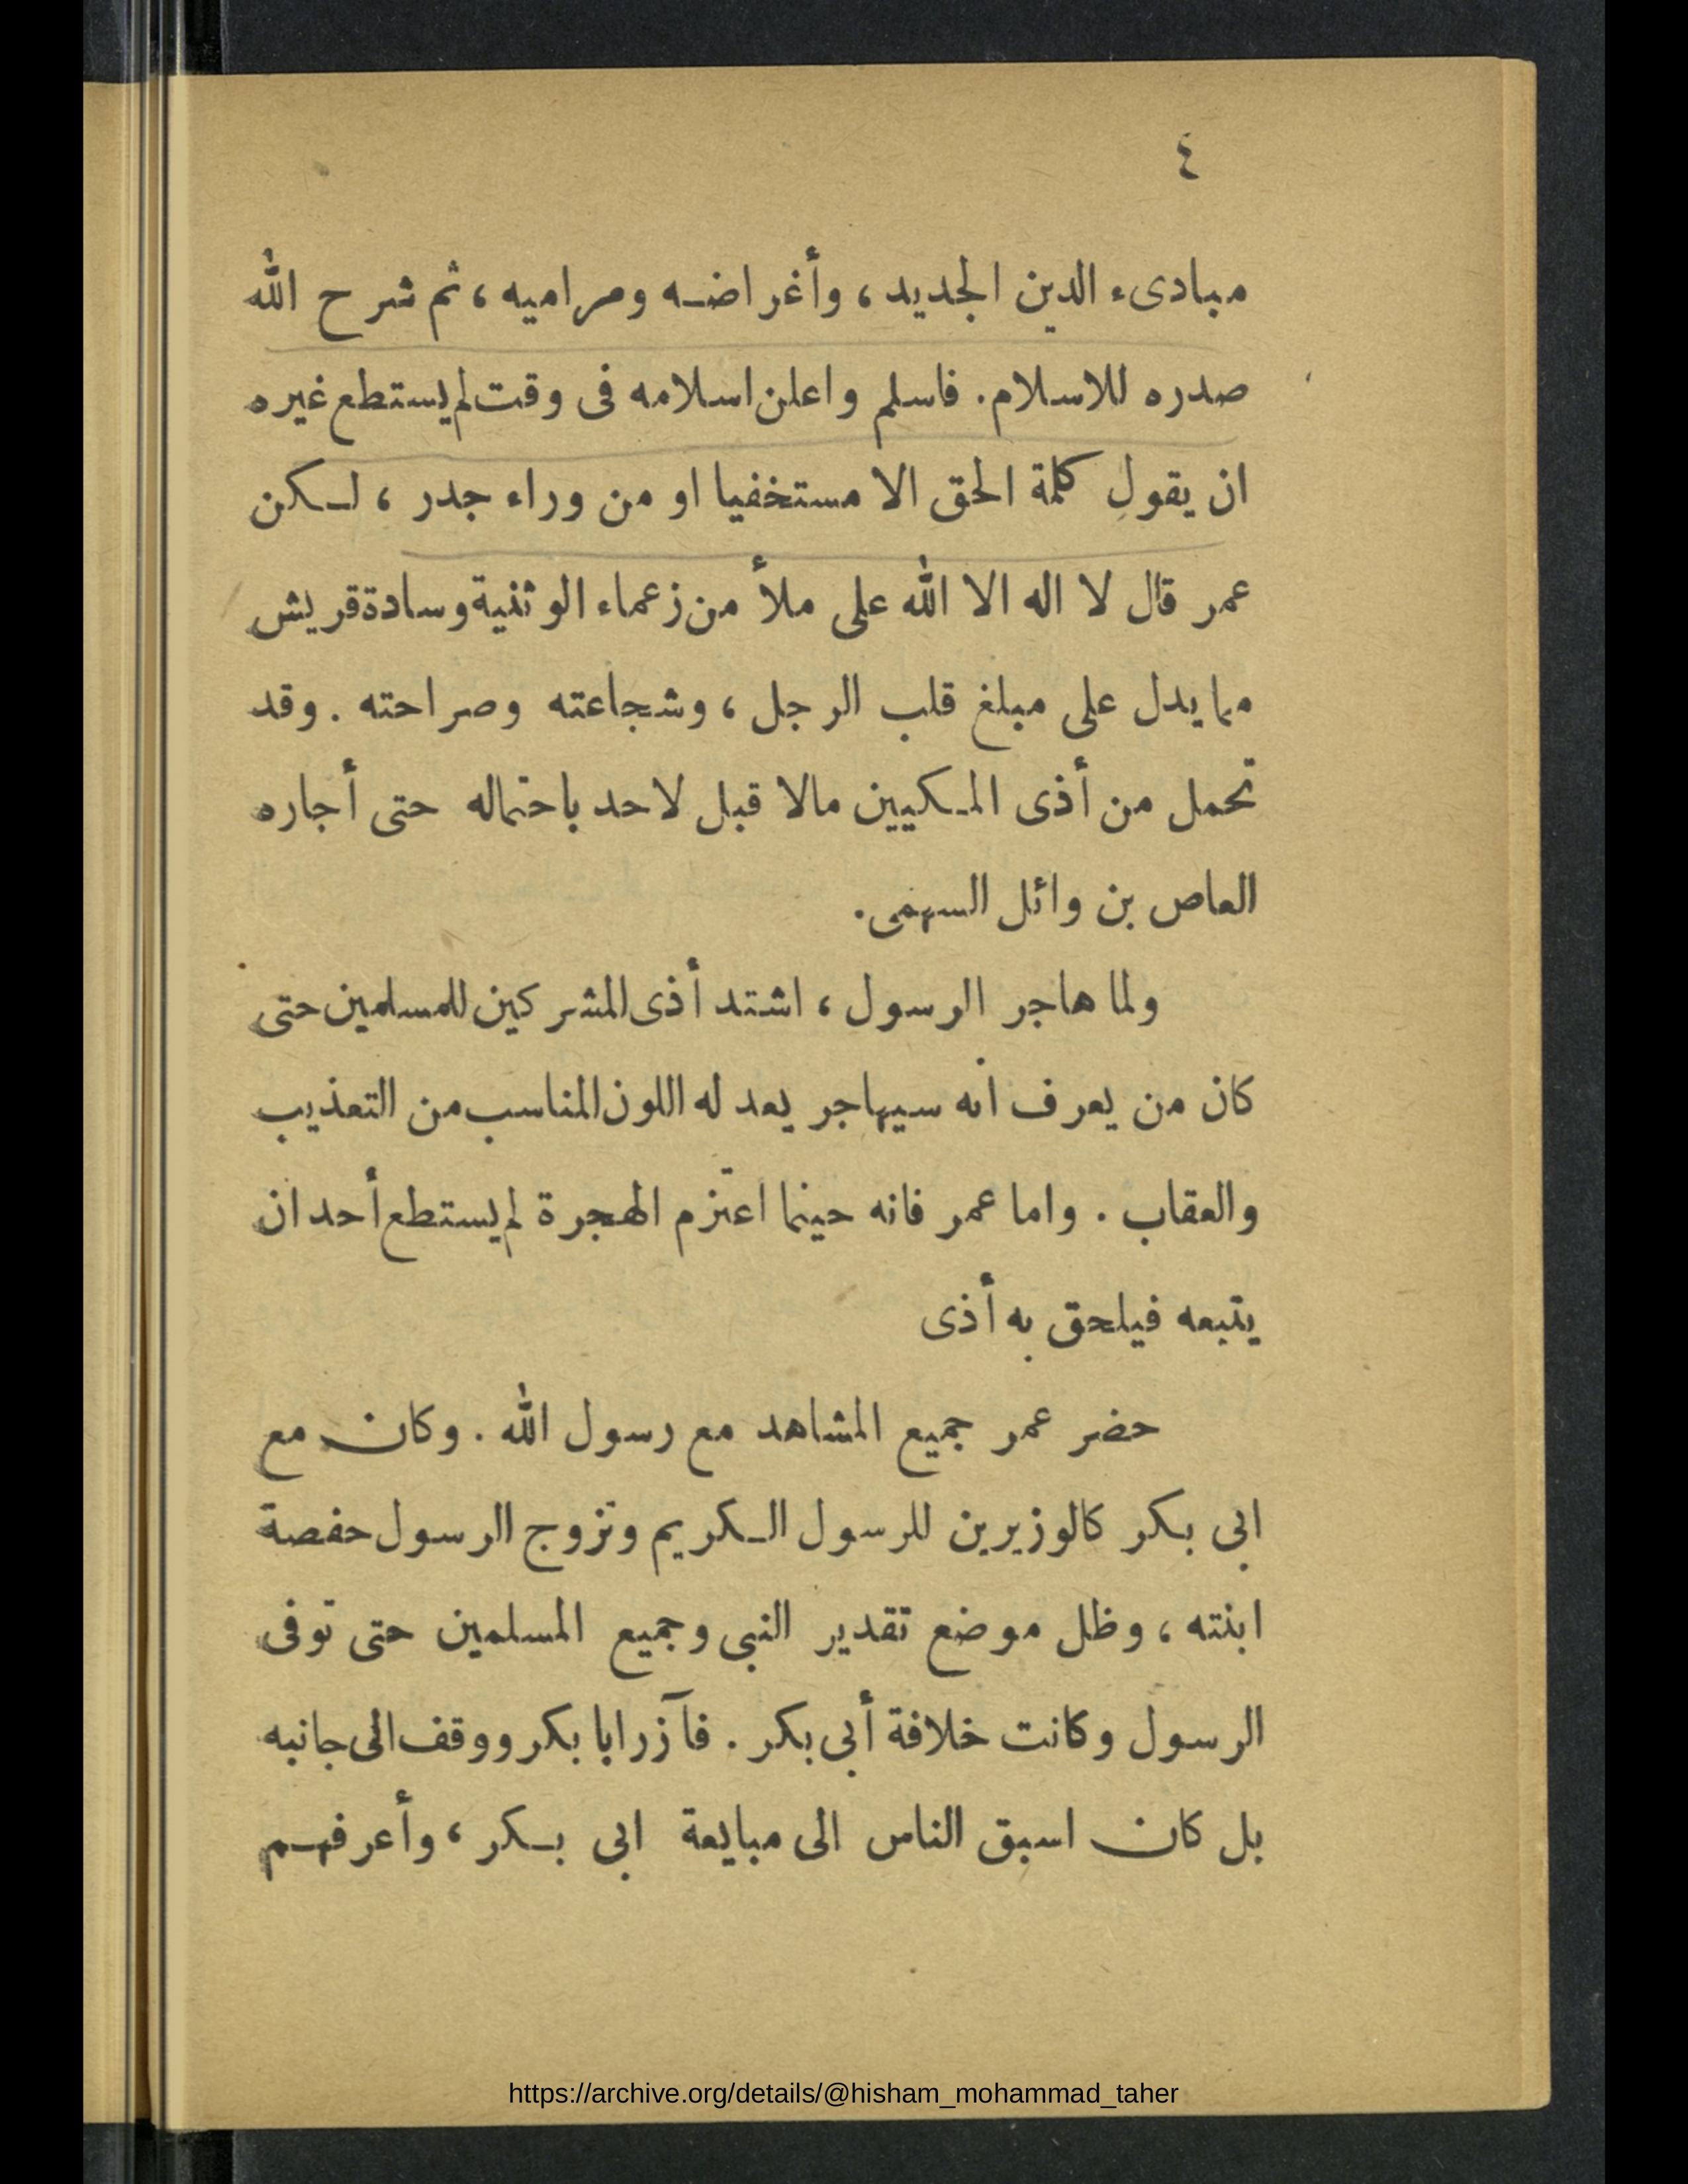 ٤
مبادىء الدين الجديد ، وأغراضه ومراميه ، ثم شرح الله
صدره للاسلام . فاسلم واعلن اسلامه فى وقت لم يستطع غيره
ان يقول كلمة الحق الا مستخفيا او من وراء جدر ، لكن
عمر قال لا اله الا الله على ملأ من زعماء الوثنية وسادة قريش
مما يدل على مبلغ قلب الرجل ، وشجاعته وصراحته . وقد
تحمل من أذى المكيين مالا قبل لاحد باحتماله حتى أجاره
العاص بن وائل السهمى .
ولما هاجر الرسول ، اشتد أذى المشركين للمسلمين حتى
كان من يعرف انه سيهاجر يعد له اللون المناسب من التعذيب
والعقاب . واما عمر فانه حينما اعتزم الهجرة لم يستطع أحد ان
يتبعه فيلحق به أذى
حضر عمر جميع المشاهد مع رسول الله . وكان مع
ابى بكر كالوزيرين للرسول الكريم وتزوج الرسول حفصة
ابنته ، وظل موضع تقدير النبى وجميع المسلمين حتى توفى
الرسول وكانت خلافة أبى بكر . فآزر ابا بكر ووقف الى جانبه
بل كان اسبق الناس الى مبايعة ابى بكر ، وأعرفهم
https://archive.org/details/@hisham_mohammad_taher